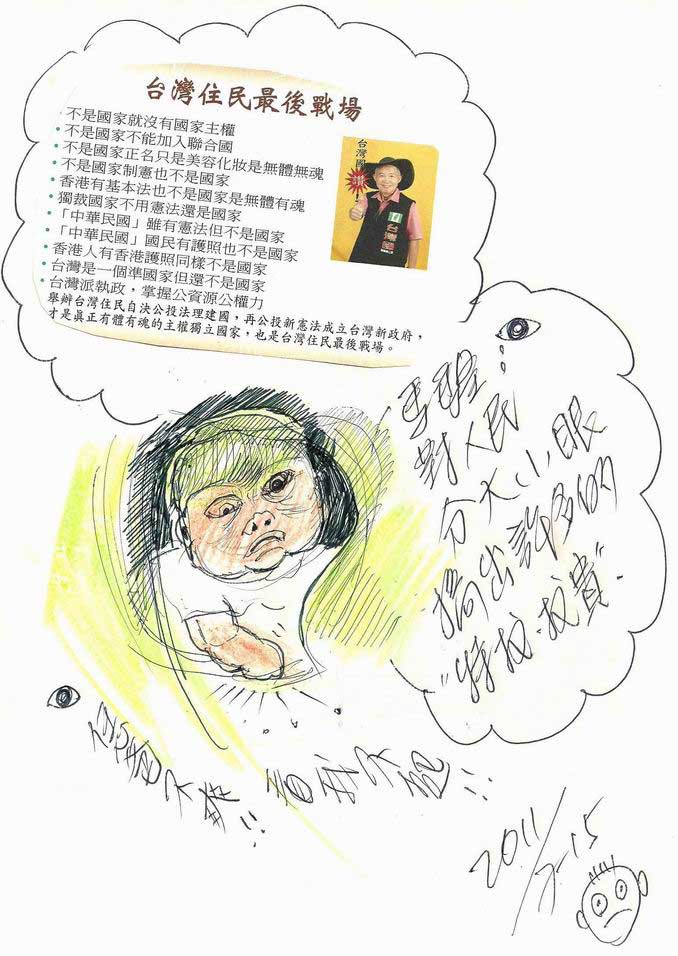 台灣住民最後戰場
•不是國家就沒有國家主權
•不是國家不能加入聯合國
•不是國家正名只是美容化妝是無體無魂
•不是國家制憲也不是國家
•香港有基本法也不是國家是無體有魂
•獨裁國家不用憲法還是國家
•「中華民國」雖有憲法但不是國家
•「中華民國」國民有護照也不是國家
•香港人有香港護照同樣不是國家
•台灣是一個準國家但還不是國家
•台灣派執政，掌握公資源公權力
舉辦台灣住民自決公投法理建國，再公投新憲法成立台灣新政府，
才是真正有體有魂的主權獨立國家，也是台灣住民最後戰場。
台灣國
對人民
分大小眼
搞出許多的
2011